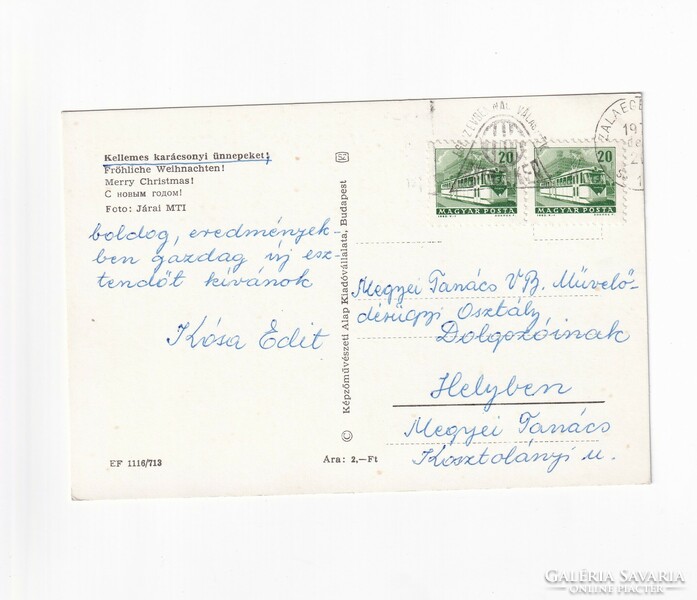 Kellemes karácsonyi ünnepeket!
Fröhliche Weihnachten!
Merry Christmas!
С новым годом!
Foto: Járai MTI
boldog, eredmények-
ben gazdag új esz-
tendőt kívánok
Kósa Edit
EF 1116/713
Ára: 2,—Ft
© Képzőművészeti Alap Kiadóvállalata, Budapest
20
MAGYAR POSTA
20
MAGYAR POSTA
ZALAEGE
19
Megyei Tanács V.B. Művelő-
désügyi Osztály
Dolgozóinak
Helyben
Megyei Tanács
Kosztolányi u.
GALÉRIA SAVARIA
ONLINE PIACTÉR